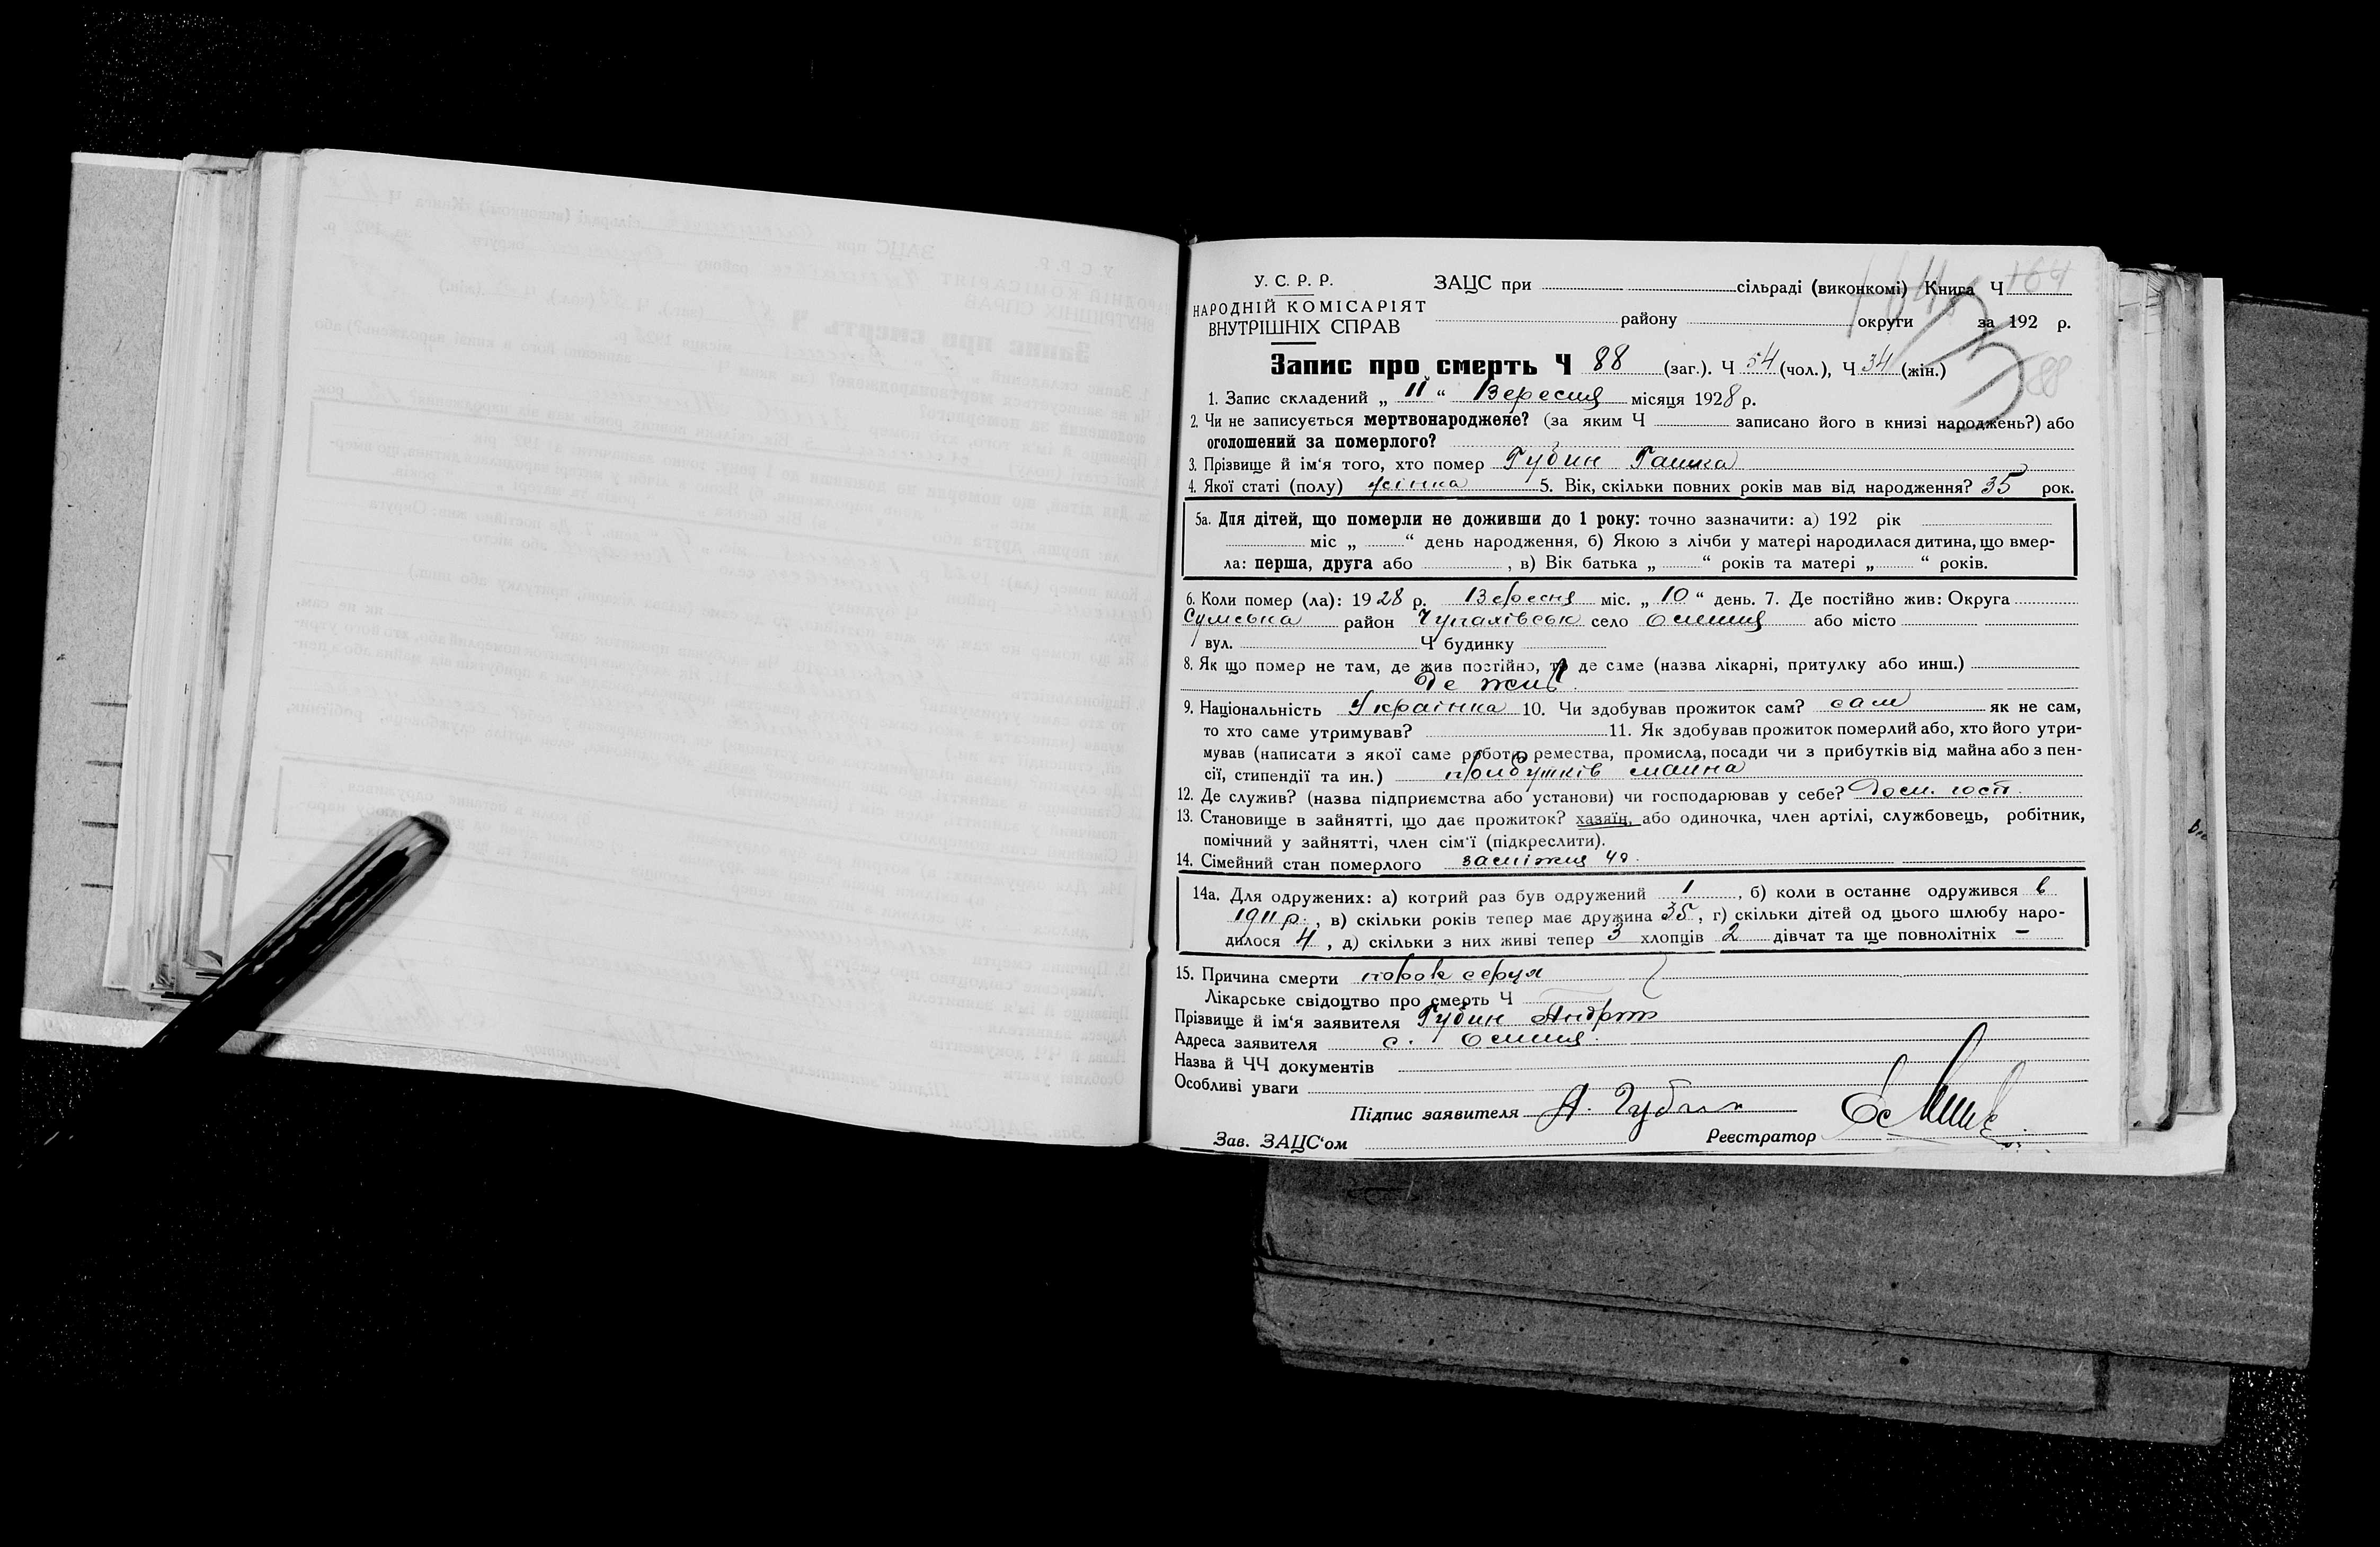 У. С. Р. Р.
НАРОДНІЙ КОМІСАРІЯТ
ВНУТРІШНІХ СПРАВ
ЗАЦС при сільраді (виконкомі) Книга Ч 164
району округи за 192 р.
Запис про смерть Ч 88 (заг.). Ч 54 (чол.), Ч 34 (жін.) 88
1. Запис складений „ 11 “ Вересня місяця 1928 р.
2. Чи не записується мертвонароджене? (за яким Ч записано його в книзі народжень?) або
оголошений за померлого?
3. Прізвище й ім'я того, хто помер Губин Гашка
4. Якої статі (полу) жінка 5. Вік, скільки повних років мав від народження? 35 рок.
5а. Для дітей, що померли не доживши до 1 року: точно зазначити: а) 192 рік
міс „ “ день народження, б) Якою з лічби у матері народилася дитина, що вмер-
ла: перша, друга або , в) Вік батька „ “ років та матері „ “ років.
6. Коли помер (ла): 1928 р. Вересня міс. „ 10 “ день. 7. Де постійно жив: Округа
Сумська район Чупахівськ село Олешня або місто
вул. Ч будинку
8. Як що помер не там, де жив постійно, то де саме (назва лікарні, притулку або инш.)
де жив
9. Національність Українка 10. Чи здобував прожиток сам? сам як не сам,
то хто саме утримував? 11. Як здобував прожиток померлий або, хто його утри-
мував (написати з якої саме роботи, ремества, промисла, посади чи з прибутків від майна або з пен-
сії, стипендії та ин.) прибутків майна
12. Де служив? (назва підприємства або установи) чи господарював у себе? Дом. госп.
13. Становище в зайнятті, що дає прожиток? хазяїн, або одиночка, член артілі, службовець, робітник,
помічний у зайнятті, член сім'ї (підкреслити).
14. Сімейний стан померлого заміжня
14а. Для одружених: а) котрий раз був одружений 1 , б) коли в останнє одружився в
1911 р. , в) скільки років тепер має дружина 35 , г) скільки дітей од цього шлюбу наро-
дилося 4 , д) скільки з них живі тепер 3 хлопців 2 дівчат та ще повнолітніх —
15. Причина смерти порок серця
Лікарське свідоцтво про смерть Ч
Прізвище й ім'я заявителя Губин Андрій
Адреса заявителя с. Олешня
Назва й ЧЧ документів
Особливі уваги
Підпис заявителя А. Губин
Зав. ЗАЦС'ом Реєстратор